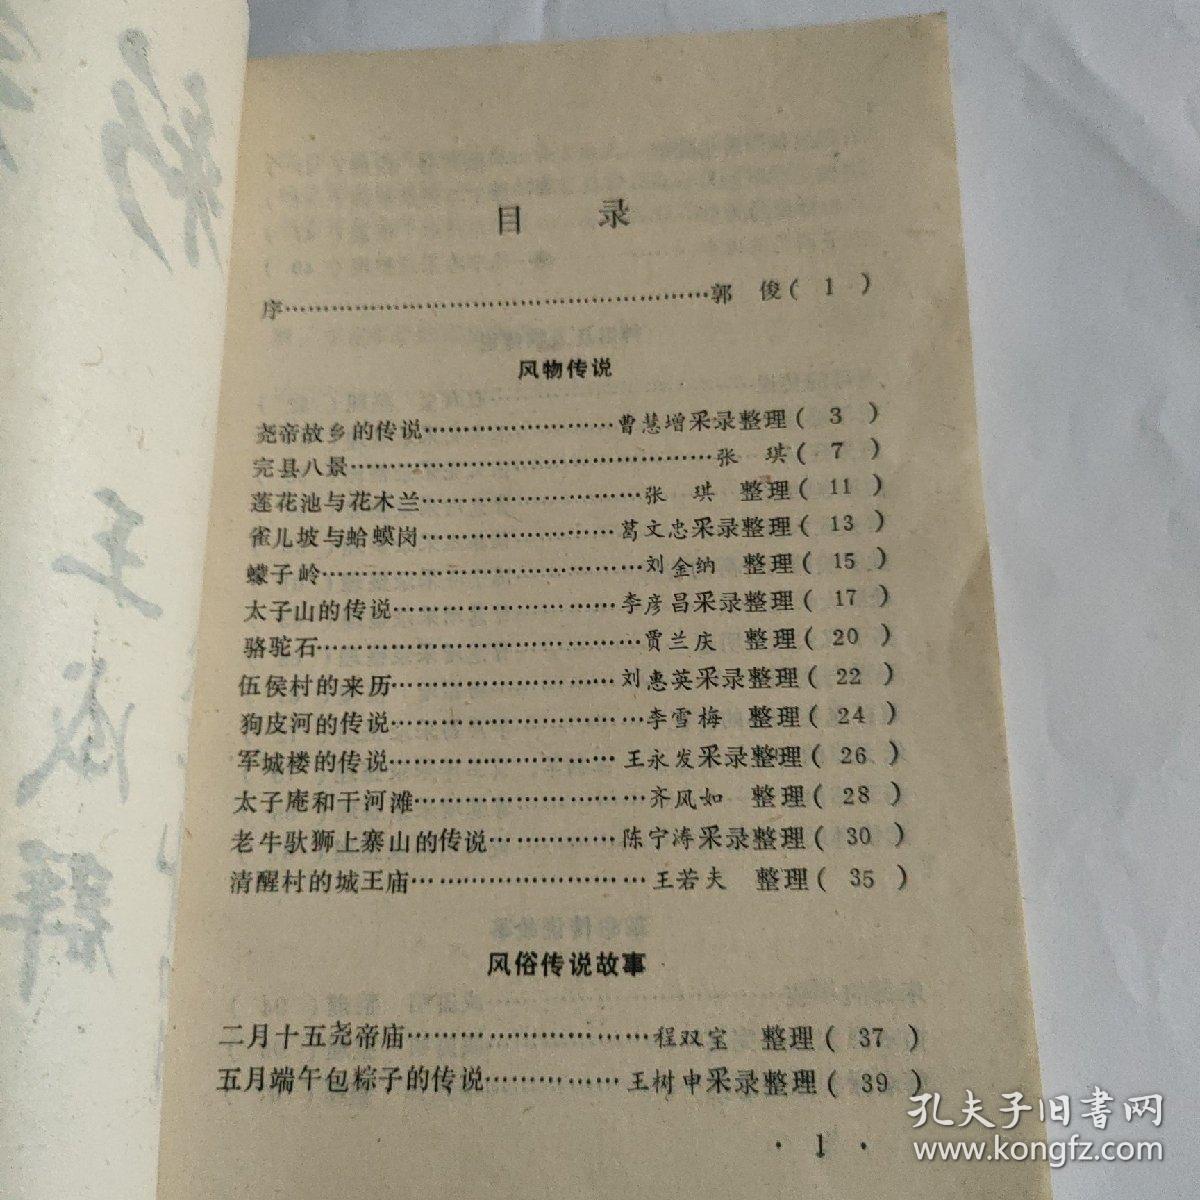 目 录
序……………………………………………郭 俊( 1 )
风物传说
尧帝故乡的传说……………………曹慧增采录整理( 3 )
完县八景………………………………………张 琪( 7 )
莲花池与花木兰………………………张 琪 整理( 11 )
雀儿坡与蛤蟆岗……………………葛文忠采录整理( 13 )
蠓子岭…………………………………刘金纳 整理( 15 )
太子山的传说………………………李彦昌采录整理( 17 )
骆驼石…………………………………贾兰庆 整理( 20 )
伍侯村的来历………………………刘惠英采录整理( 22 )
狗皮河的传说…………………………李雪梅 整理( 24 )
军城楼的传说………………………王永发采录整理( 26 )
太子庵和干河滩………………………齐风如 整理( 28 )
老牛驮狮上寨山的传说……………陈宁涛采录整理( 30 )
清醒村的城王庙………………………王若夫 整理( 35 )
风俗传说故事
二月十五尧帝庙………………………程双宝 整理( 37 )
五月端午包粽子的传说……………王树申采录整理( 39 )
· 1 ·
孔夫子旧书网
www.kongfz.com